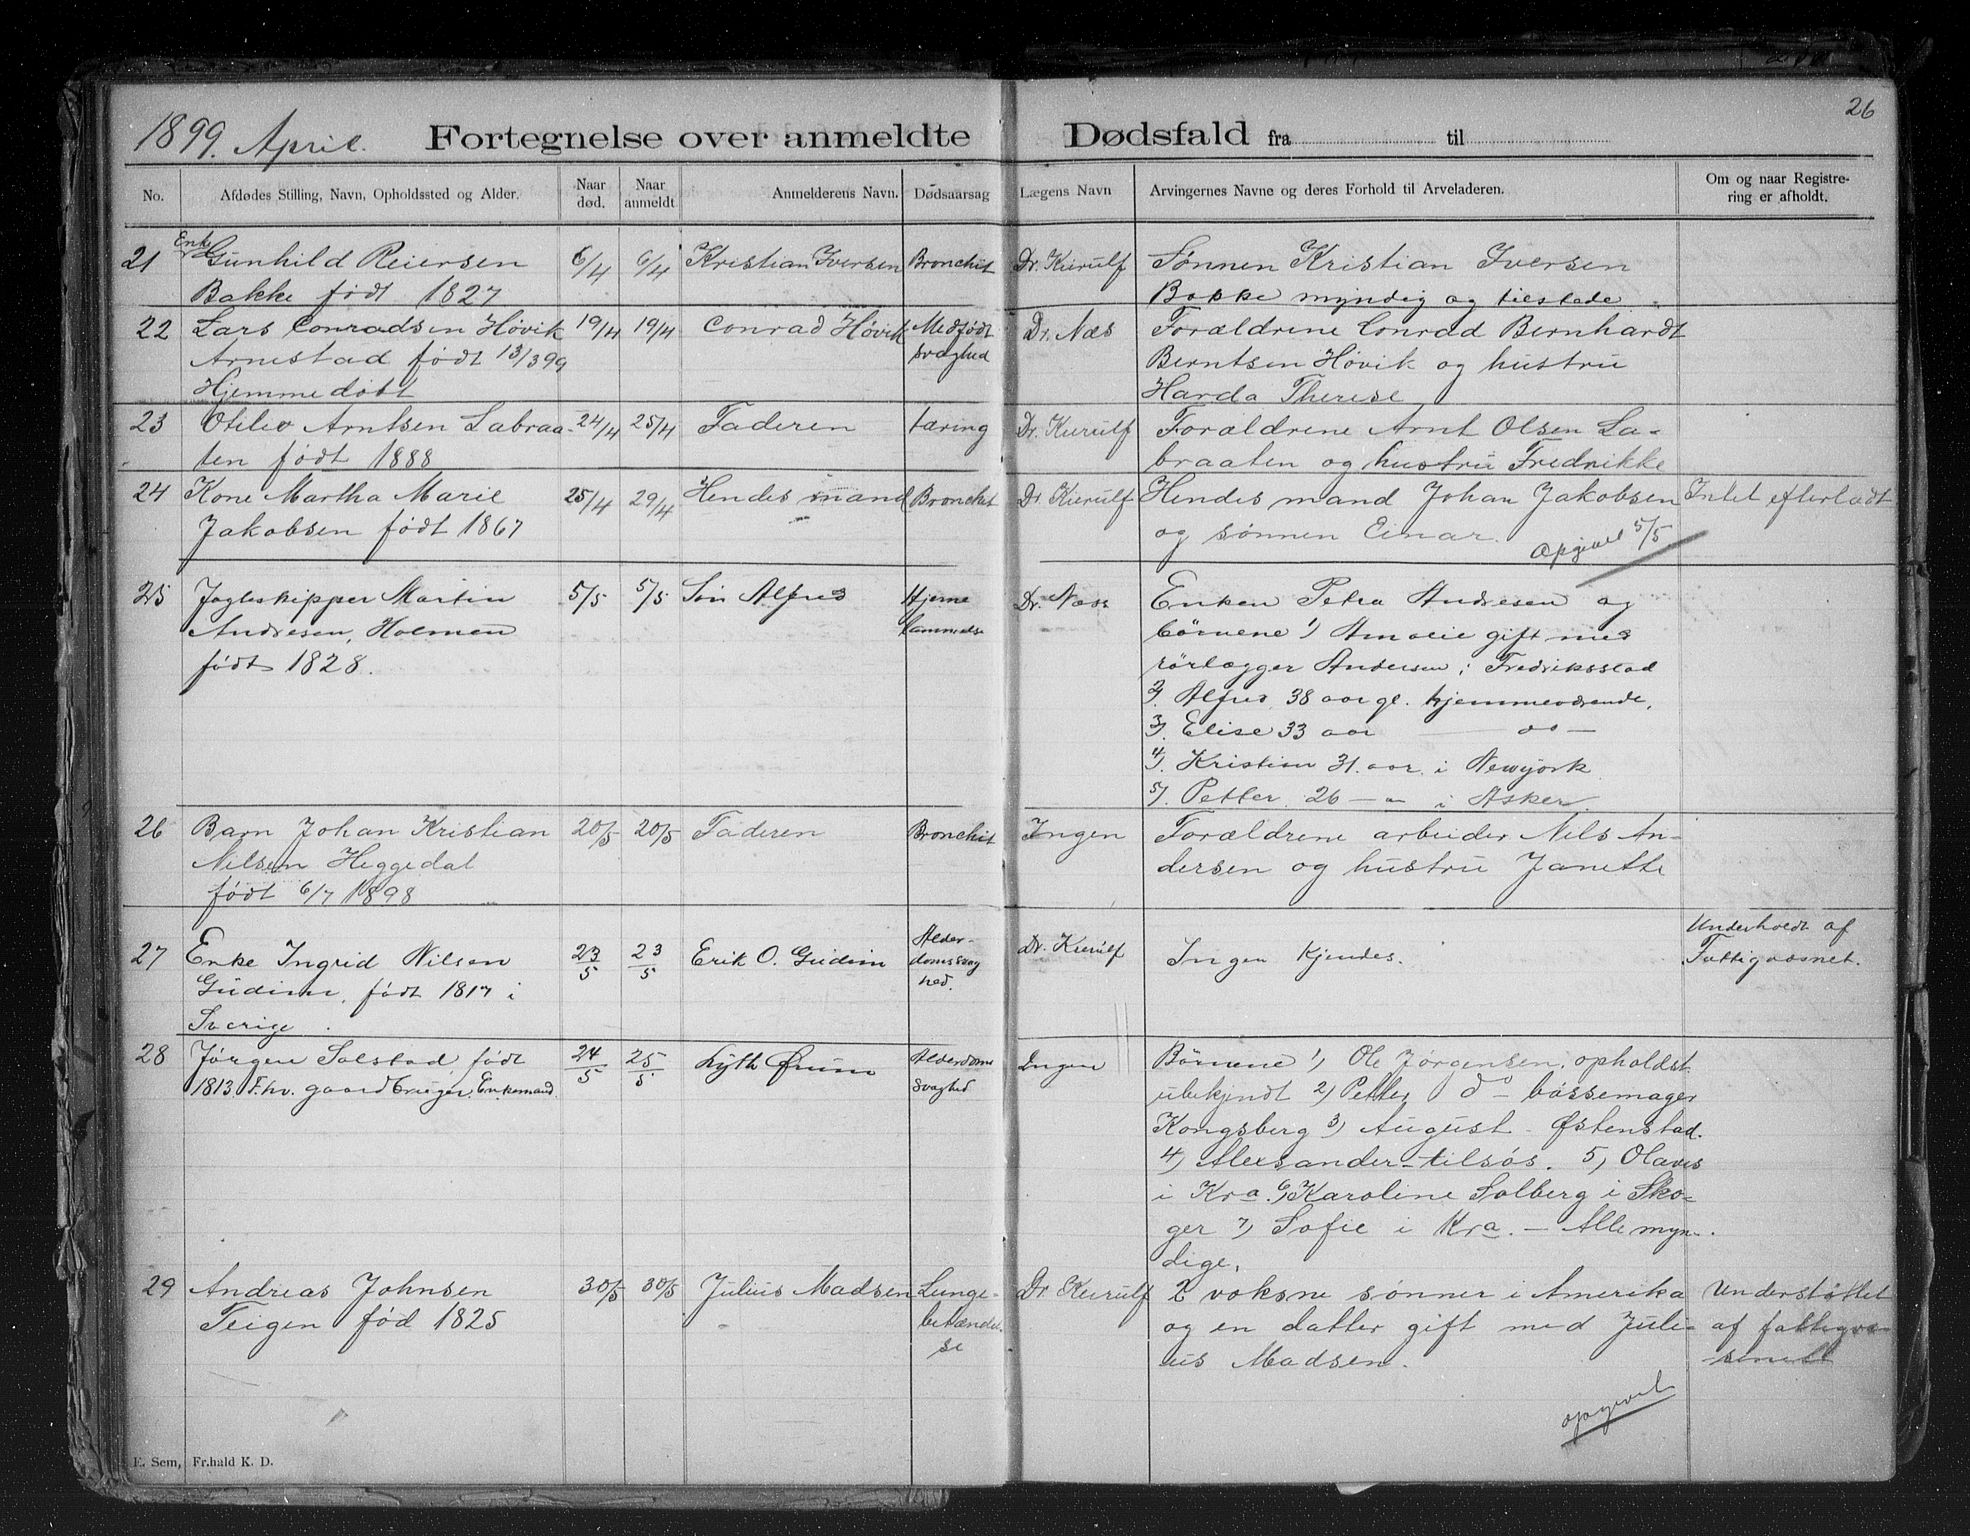 26
1899. April. Fortegnelse over anmeldte Dødsfald fra til
No. Afdødes Stilling, Navn, Opholdssted og Alder. Naar død. Naar anmeldt Anmelderens Navn. Dødsaarsag Lægens Navn Arvingernes Navne og deres Forhold til Arveladeren. Om og naar Registrering er afholdt.
21 Enke Gunhild Reiersen 6/4 6/4 Kristian Iversen Bronchit Dr. Kierulf Sønnen Kristian Iversen
Bakke født 1827 Bakke myndig og tilstede.
22 Lars Conradsen Høvik 19/4 19/4 Conrad Høvik Medfødt Dr. Næs Forældrene Conrad Bernhardt
Arnestad født 13/3 99 svaghed Berntsen Høvik og hustru
Hjemmedøbt Harda Therese
23 Otilev Arntsen Labraa- 24/4 25/4 Faderen tæring Dr. Kierulf Forældrene Arnt Olsen La-
ten født 1888 braaten og hustru Fredrikke
24 Kone Martha Marie 25/4 29/4 Hendes mand Bronchit Dr. Kierulf Hendes mand Johan Jakobsen Intet efterladt
Jakobsen født 1867 og sønnen Einar. Opgivet 5/5
25 Jagteskipper Martin 5/5 5/5 Søn Alfred Hjerne Dr. Næss Enken Petra Andresen og
Andresen, Holmen lammelse børnene 1) Amalie gift med
født 1828. rörlægger Andersen i Fredriksstad
2). Alfred 38 aar gl. hjemmeværende,
3). Elise 33 aar — do —
4). Kristian 31. aar i Newyork
5). Petter 26 — " i Asker.
26 Barn Johan Kristian 20/5 20/5 Faderen Bronchit Ingen Forældrene arbeider Nils An-
Nilsen Heggedal dersen og hustru Janette
født 6/7 1898
27 Enke Ingrid Nilsen 23/5 23/5 Erik O. Gudim Alder- Dr. Kierulf Ingen Kjendes. Underholdt af
Gudim, født 1817 i domssvag Fattigvæsnet.
Sverige. hed.
28 Jørgen Solstad, født 24/5 25/5 Lyth Ørum Alderdoms Ingen Børnene 1) Ole Jørgensen, opholdst.
1813. Fhv. gaardbruger. Enkemand. svaghed ubekjendt 2) Petter do — bøssemager
Kongsberg 3) August - Østenstad.
4) Alexsander - tilsøs. 5, Olaves
i Kra. 6) Karoline Solberg i Sko-
ger 7) Sofie i Kra. — Alle myn-
dige.
29 Andreas Johnsen 30/5 30/5 Julius Madsen Lunge- Dr. Kierulf 2 voksne sønner i Amerika Understøttet
Teigen fød 1825 betændel- og en datter gift med Juli- af fattigvæ-
se us Madsen. senet
opgivet
E. Sem, Fr.hald K. D.